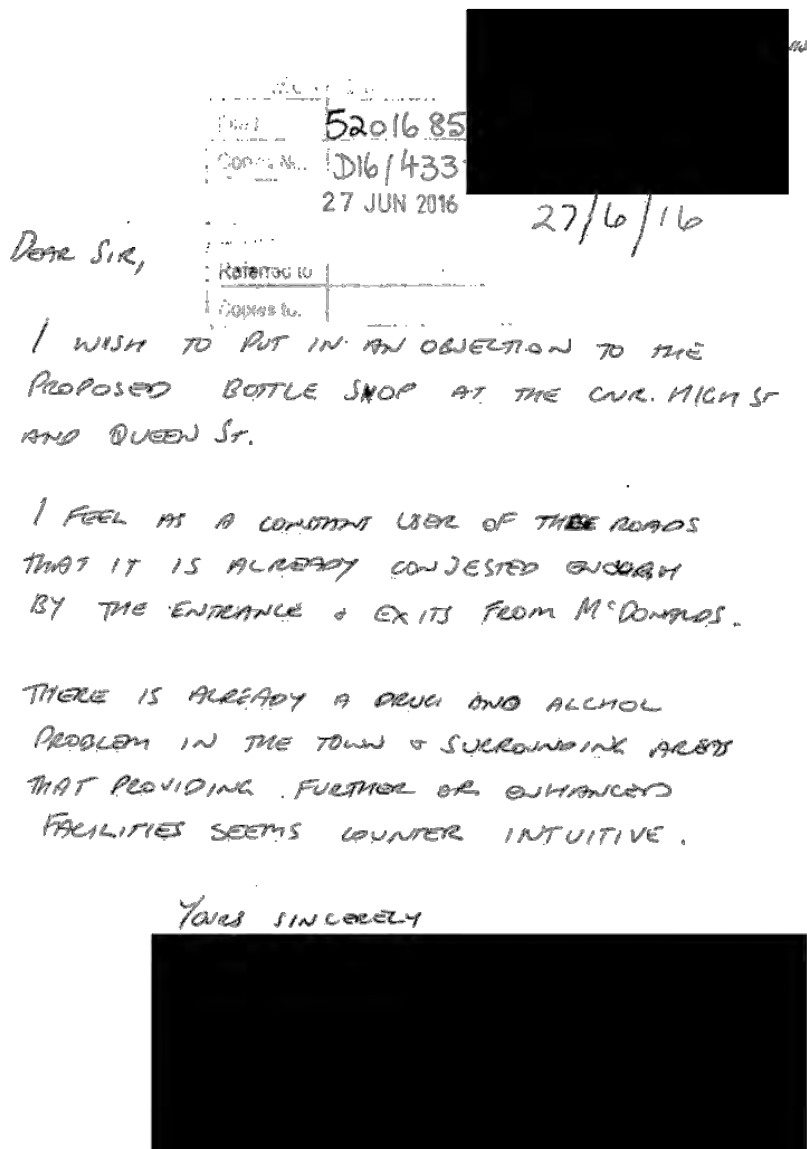 52016 85
D16/433
27 JUN 2016
27/6/16
DEAR SIR,
Referred to
Copies to.
I WISH TO PUT IN AN OBJECTION TO THE
PROPOSED BOTTLE SHOP AT THE CNR. HIGH ST
AND QUEEN ST.
I FEEL AS A CONSTANT USER OF THESE ROADS
THAT IT IS ALREADY CONJESTED ENOUGH
BY THE ENTRANCE & EXITS FROM McDONALDS.
THERE IS ALREADY A DRUG AND ALCHOL
PROBLEM IN THE TOWN & SURROUNDING AREAS
THAT PROVIDING FURTHER OR ENHANCED
FACILITIES SEEMS COUNTER INTUITIVE.
YOURS SINCERELY